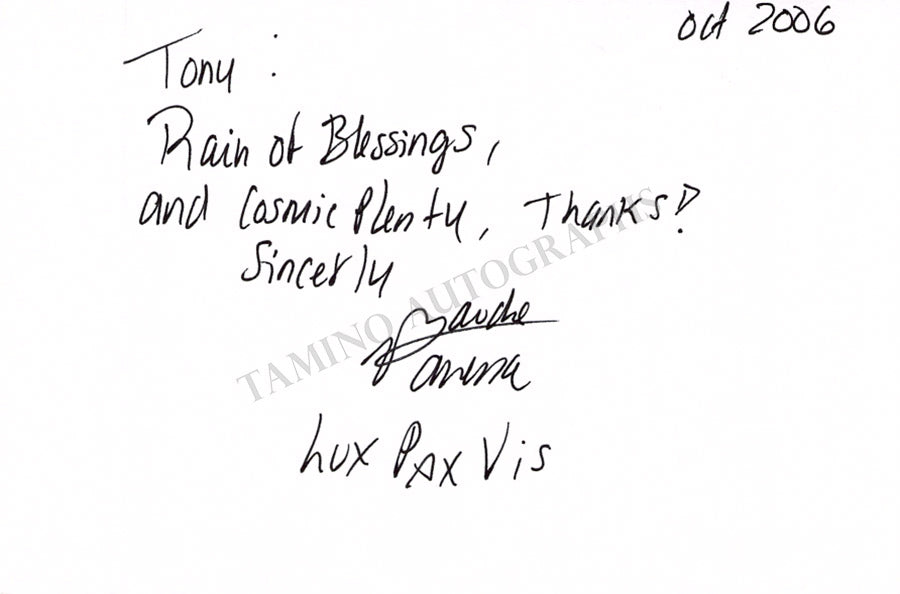 oct 2006
Tony :
Rain of Blessings,
and Cosmic Plenty, Thanks!
Sincerly
TAMINO AUTOGRAPHS
Lux Pax Vis